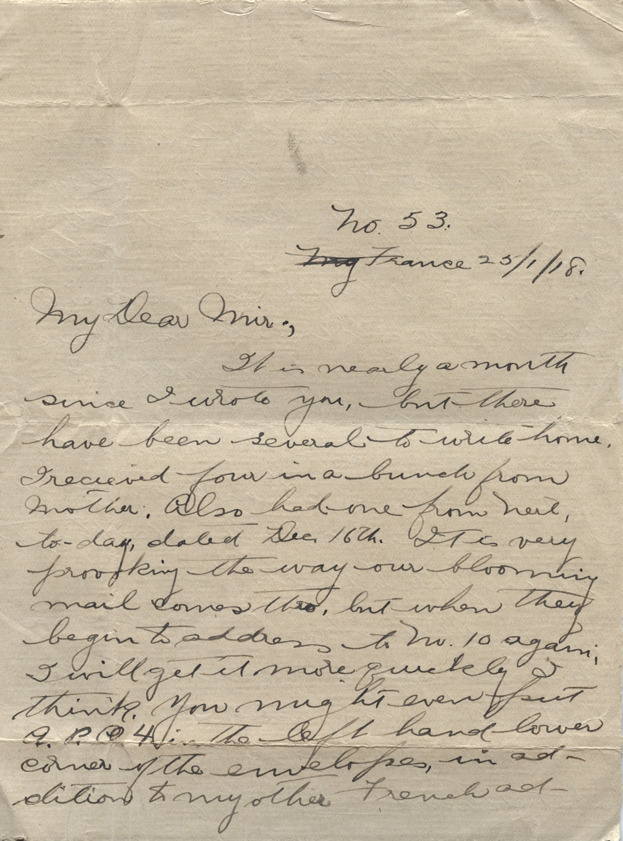 No. 53.
My France 25/1/18.
My Dear Mir.,
It is nearly a month
since I wrote you, but there
have been several to write home.
I recieved four in a bunch from
Mother. Also had one from Neil,
to-day, dated Dec. 16th. It is very
provoking the way our blooming
mail comes thro, but when they
begin to address to No. 10 again,
I will get it more quickly I
think. You might even put
A. P. O 4 in the left hand lower
corner of the envelopes, in ad-
dition to my other French ad-